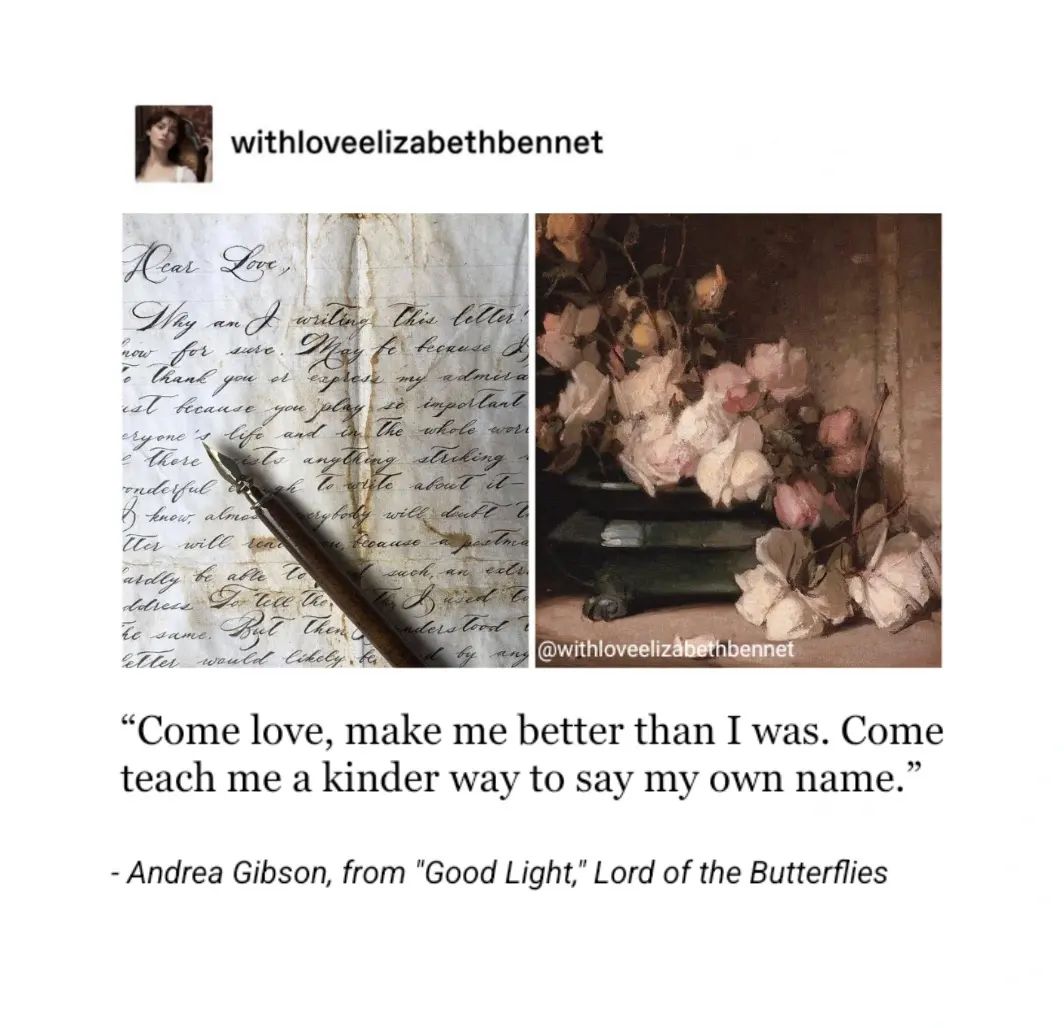 withloveelizabethbennet
Dear Love,
Why am I writing this letter?
now for sure. May be because I
to thank you or express my admira
ust because you play so important
eryone's life and in the whole worl
there ists anything striking
onderful gh to write about it
I know, almos erybody will doubt
tter will because a postma
ardly be able to such, an extr
ddress To tell the I used to
he same. But then nderstood
etter would likely be d by any
@withloveelizabethbennet
“Come love, make me better than I was. Come
teach me a kinder way to say my own name.”
- Andrea Gibson, from "Good Light," Lord of the Butterflies